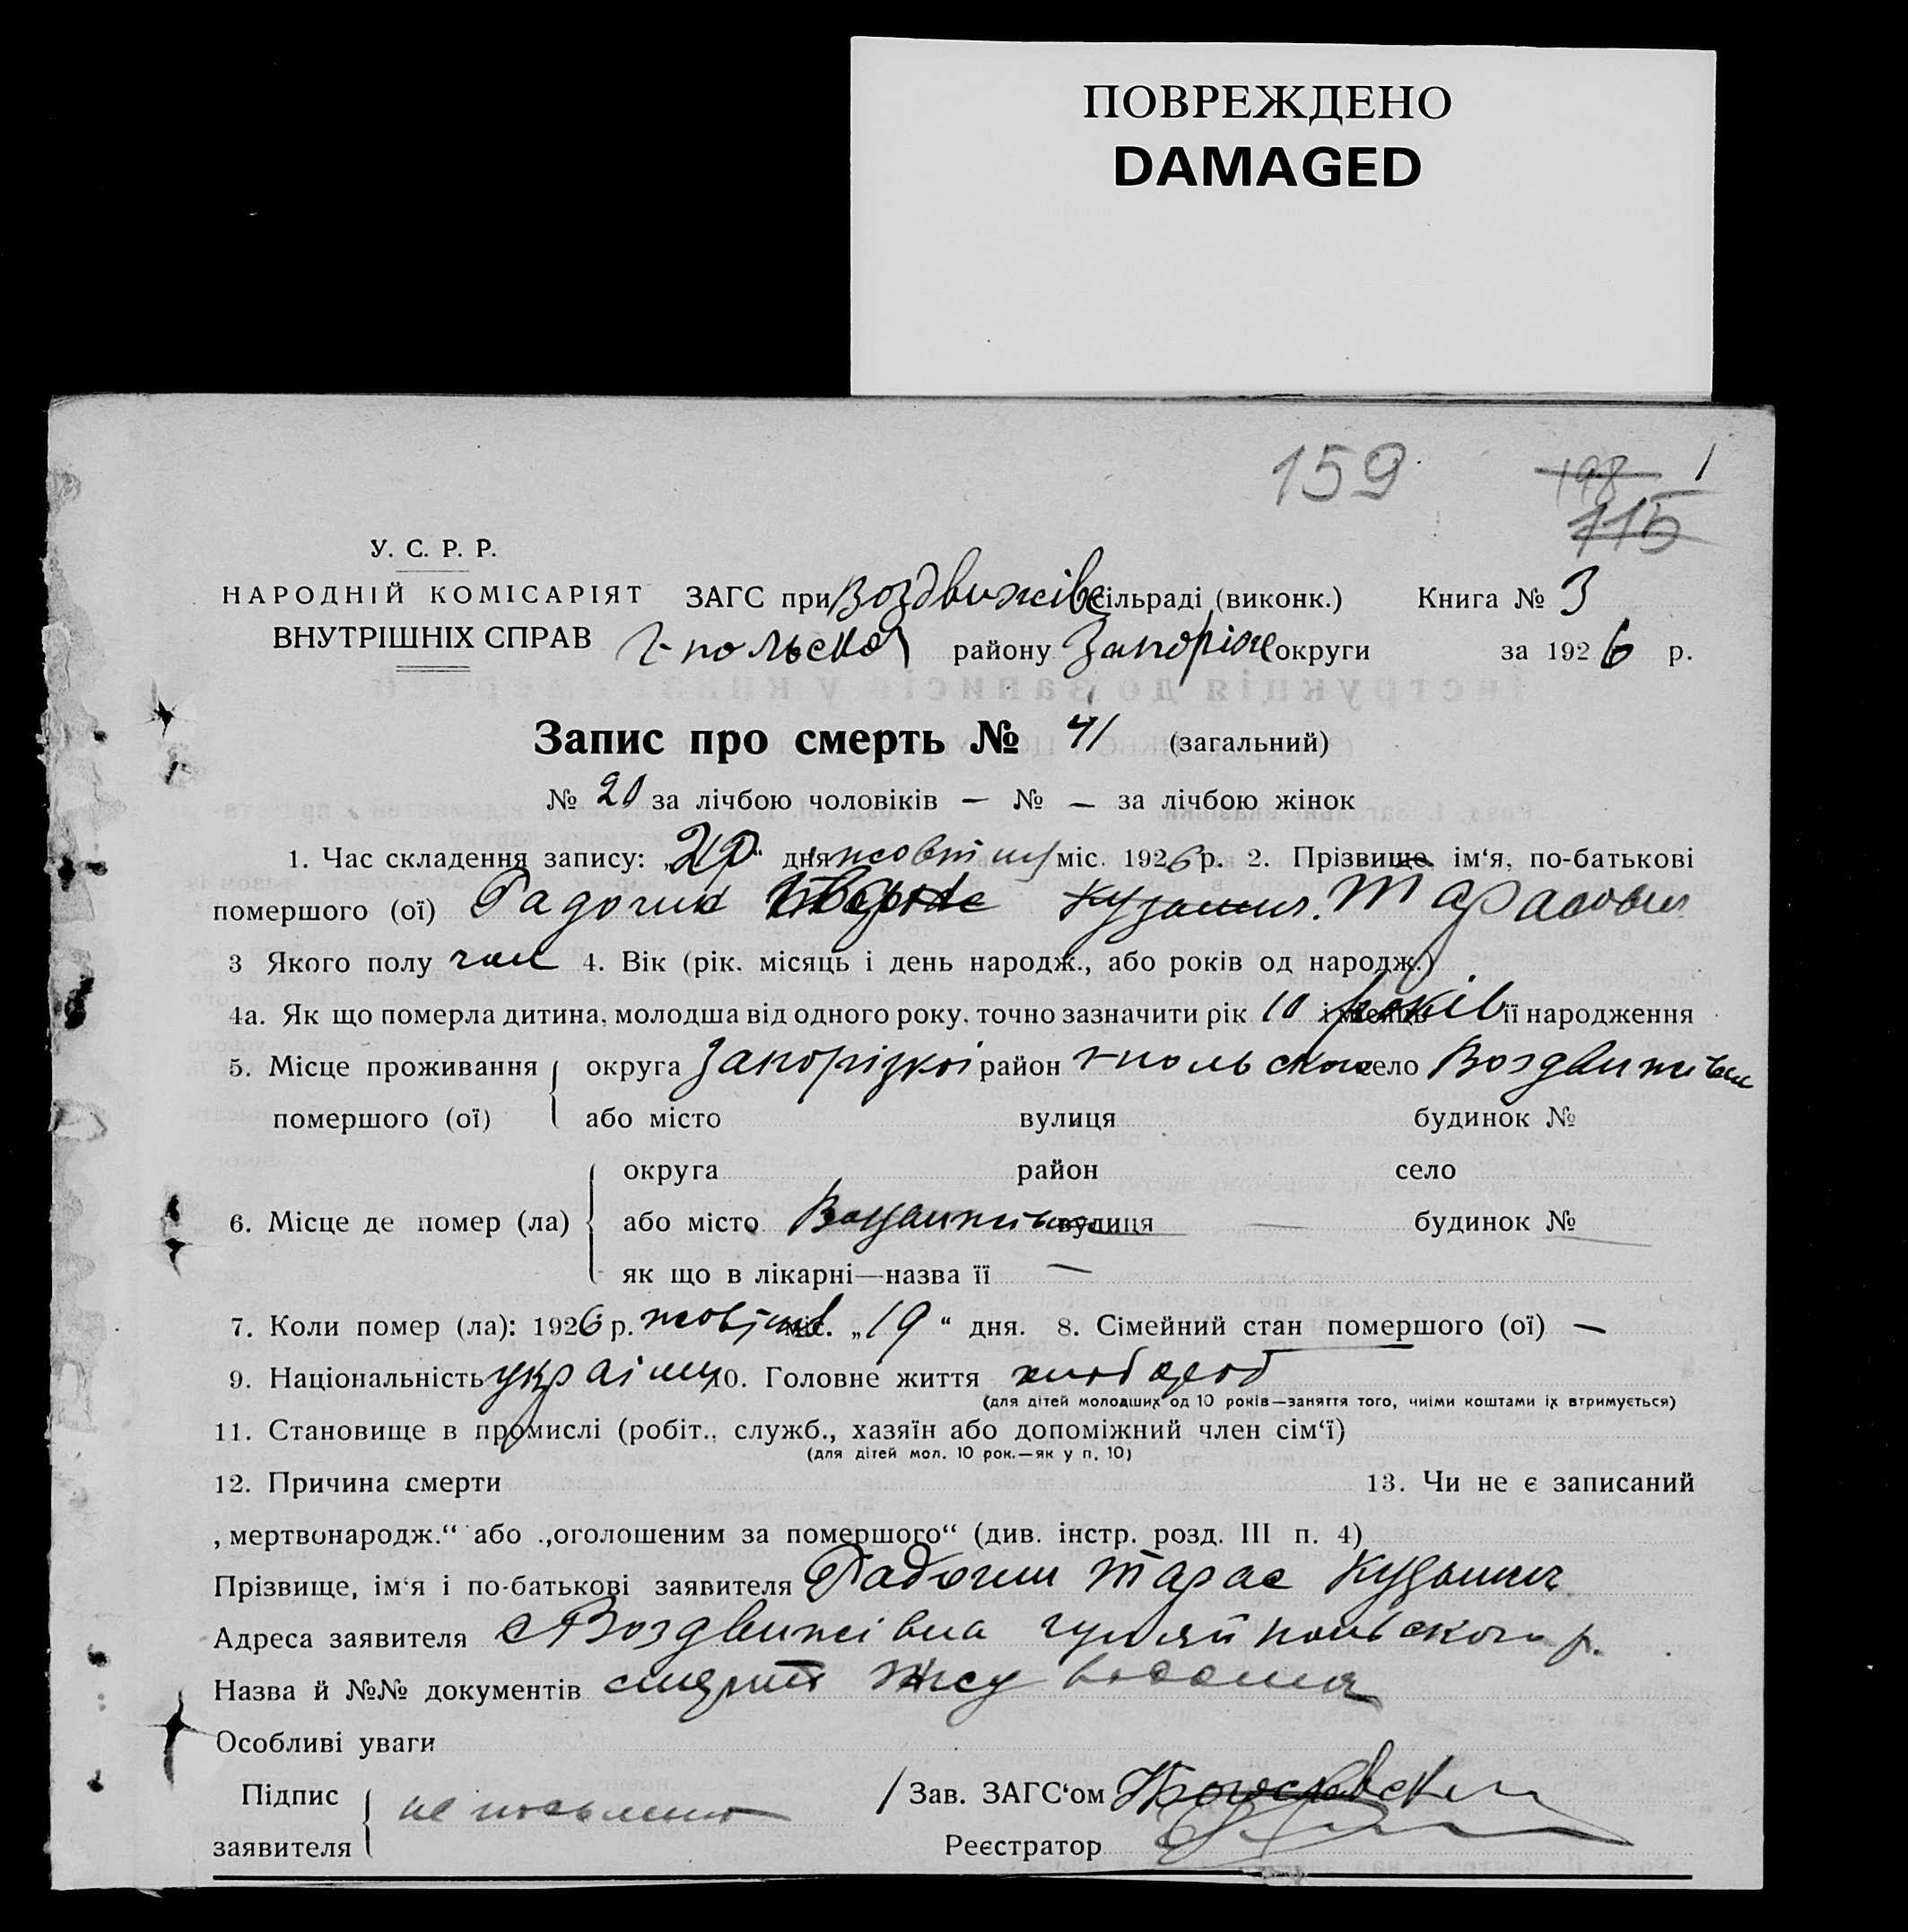 ПОВРЕЖДЕНО
DAMAGED
159 198 1
115
У. С. Р. Р.
НАРОДНІЙ КОМІСАРІЯТ ЗАГС при Воздвижівс сільраді (виконк.) Книга № 3
ВНУТРІШНІХ СПРАВ Г-польскоі району Запоріж округи за 1926 р.
Запис про смерть № 41 (загальний)
№ 20 за лічбою чоловіків — № — за лічбою жінок
1. Час складення запису: „20“ дня жовтня міс. 1926 р. 2. Прізвище, ім‘я, по-батькові
помершого (ої) Кузьмич. Тарасович
3 Якого полу чол 4. Вік (рік, місяць і день народж., або років од народж.)
4а. Як що померла дитина, молодша від одного року, точно зазначити рік 10 років її народження
5. Місце проживання округа Запорізкоі район г-польского село Воздвижівка
помершого (ої) або місто вулиця будинок №
округа район село
6. Місце де помер (ла) або місто Воздвижівка вулиця — будинок № —
як що в лікарні—назва її —
7. Коли помер (ла): 1926 р. жовтня міс. „19“ дня. 8. Сімейний стан помершого (ої) —
9. Національність украінец 10. Головне життя хлібороб
(для дітей молодших од 10 років—заняття того, чиїми коштами їх втримується)
11. Становище в промислі (робіт., служб., хазяїн або допоміжний член сім‘ї)
(для дітей мол. 10 рок.—як у п. 10)
12. Причина смерти 13. Чи не є записаний
„мертвонародж.“ або „оголошеним за помершого“ (див. інстр. розд. III п. 4)
Прізвище, ім‘я і по-батькові заявителя Тарас Кузьмич
Адреса заявителя с Воздвижівка гуляйпольского р.
Назва й №№ документів смерть
Особливі уваги
Підпис / Зав. ЗАГС‘ом
заявителя не письменно
Реєстратор